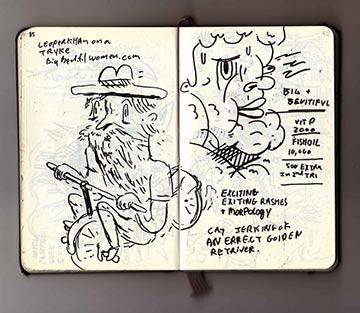 85
LEOPERKHAN on a
TRYKE
BigBeutifulwomen.com
BIG +
BEVITIFUL
VIT D
2000
FISHOIL
10,000
500 EXTRA
EXCITING
EXITING RASHES
+ MORPOLOGY
CAT JERKIN OF
AN ERRECT GOLDEN
RETRIVER.